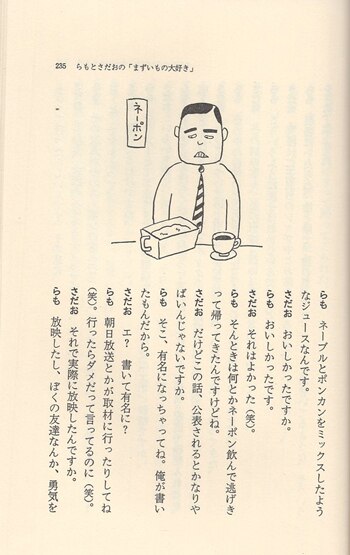 235 らもとさだおの「まずいもの大好き」
ネーポン
らも ネーブルとポンカンをミックスしたよう
なジュースなんです。
さだお おいしかったですか。
らも おいしかったです。
さだお それはよかった(笑)。
らも そんときは何とかネーポン飲んで逃げき
って帰ってきたんですけどね。
さだお だけどこの話、公表されるとかなりや
ばいんじゃないですか。
らも そこ、有名になっちゃってね。俺が書い
たもんだから。
さだお エ? 書いて有名に?
らも 朝日放送とかが取材に行ったりしてね
(笑)。行ったらダメだって言ってるのに(笑)。
さだお それで実際に放映したんですか。
らも 放映したし、ぼくの友達なんか、勇気を